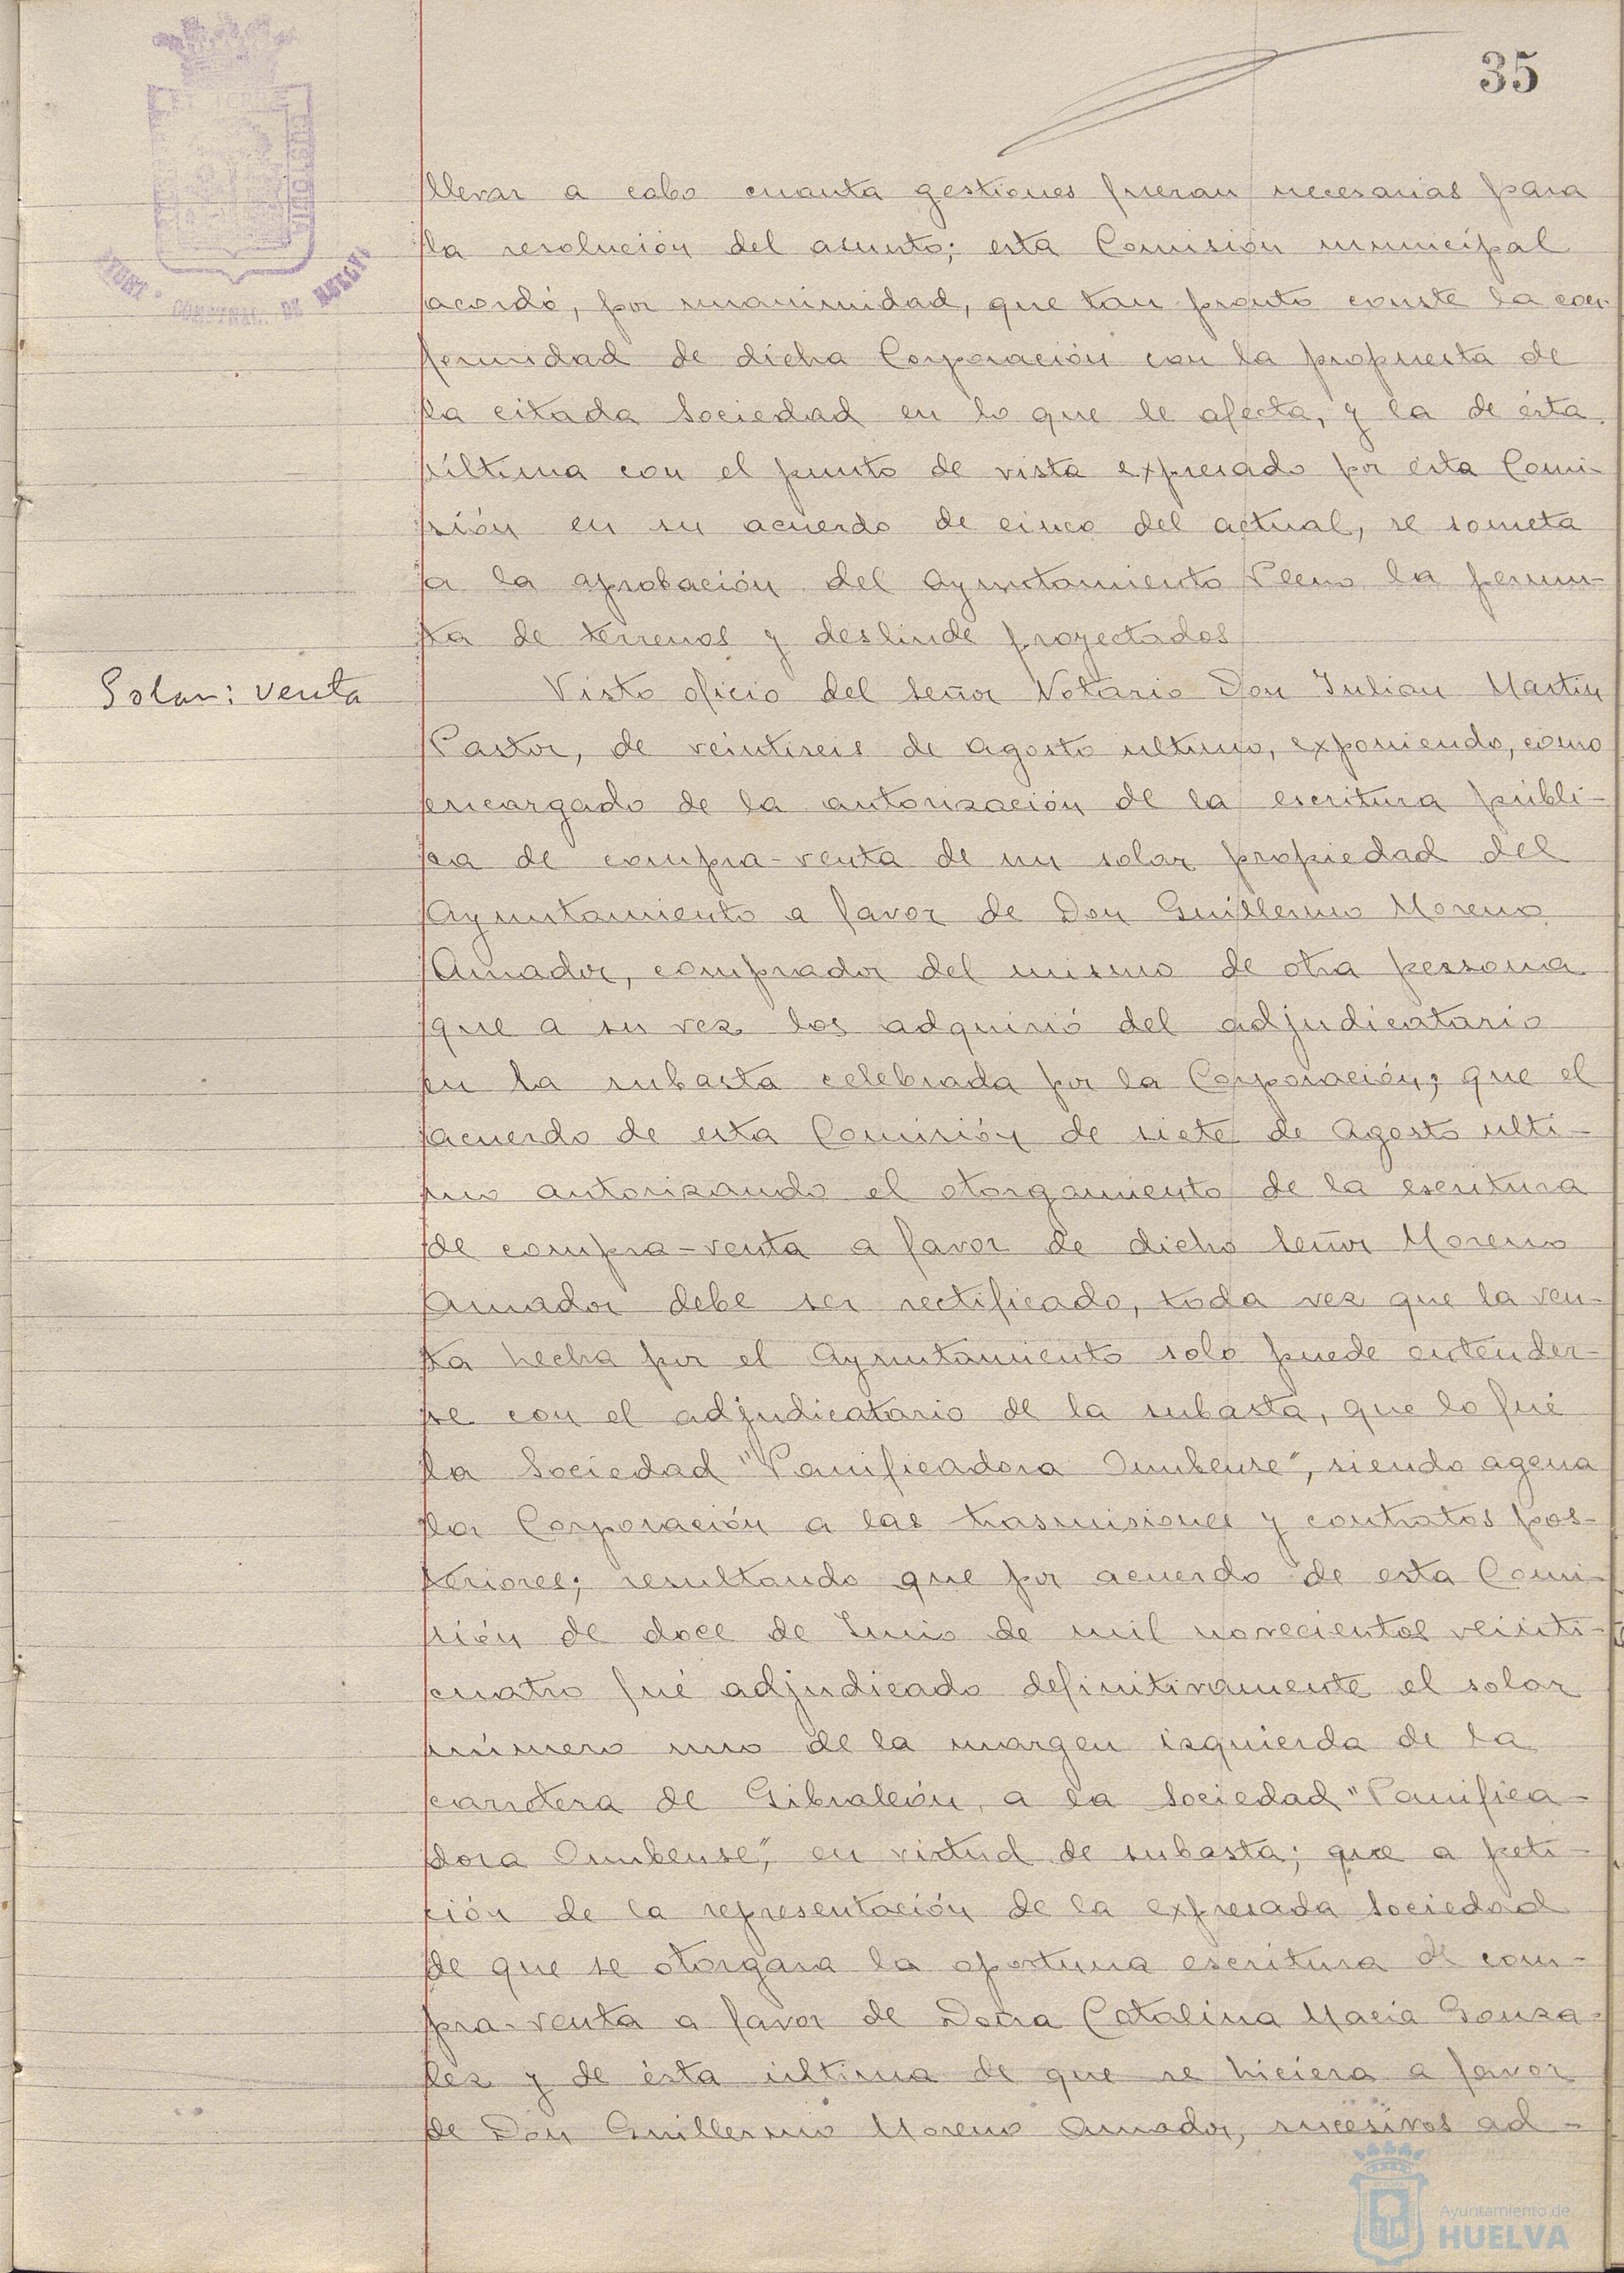 35
llevar a cabo cuanta gestiones fueran necesarias para
la resolución del asunto; esta Comisión municipal
acordó, por unanimidad, que tan pronto conste la con-
formidad de dicha Corporación con la propuesta de
la citada Sociedad en lo que le afecta, y la de ésta
última con el punto de vista expresado por ésta Comi-
sión en su acuerdo de cinco del actual, se someta
a la aprobación del Ayuntamiento Pleno la permu-
ta de terrenos y deslinde proyectados
Solar: venta
Visto oficio del Señor Notario Don Julian Martin
Pastor, de veintiseis de agosto ultimo, exponiendo, como
encargado de la autorización de la escritura públi-
ca de compra-venta de un solar propiedad del
Ayuntamiento a favor de Don Guillermo Moreno
Amador, comprador del mismo de otra persona
que a su vez los adquirió del adjudicatario
en la subasta celebrada por la Corporación; que el
acuerdo de esta Comisión de siete de Agosto ulti-
mo autorizando el otorgamiento de la escritura
de compra-venta a favor de dicho Señor Moreno
Amador debe ser rectificado, toda vez que la ven-
ta hecha por el Ayuntamiento solo puede entender-
se con el adjudicatario de la subasta, que lo fué
la Sociedad "Panificadora Onubense", siendo agena
la Corporación a las trasmisiones y contratos pos-
teriores; resultando que por acuerdo de esta Comi-
sión de doce de Junio de mil novecientos veinti-
cuatro fué adjudicado definitivamente el solar
número uno de la margen izquierda de la
carretera de Gibraleón, a la Sociedad "Panifica-
dora Onubense", en virtud de subasta; que a peti-
ción de la representación de la expresada Sociedad
de que se otorgara la oportuna escritura de com-
pra-venta a favor de Doña Catalina Macia Gonza-
lez y de ésta última de que se hiciera a favor
de Don Guillermo Moreno Amador, sucesivos ad-
AYUNT. CONSTNAL. DE HUELVA
Ayuntamiento de
HUELVA